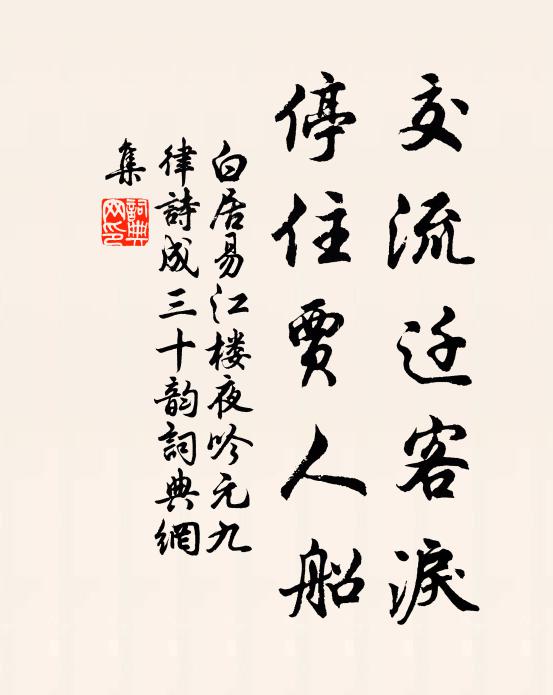 交流迁客淚
停住賈人船
白居易江楼夜吟元九
律詩成三十韵詞典網
集
詞典
网印